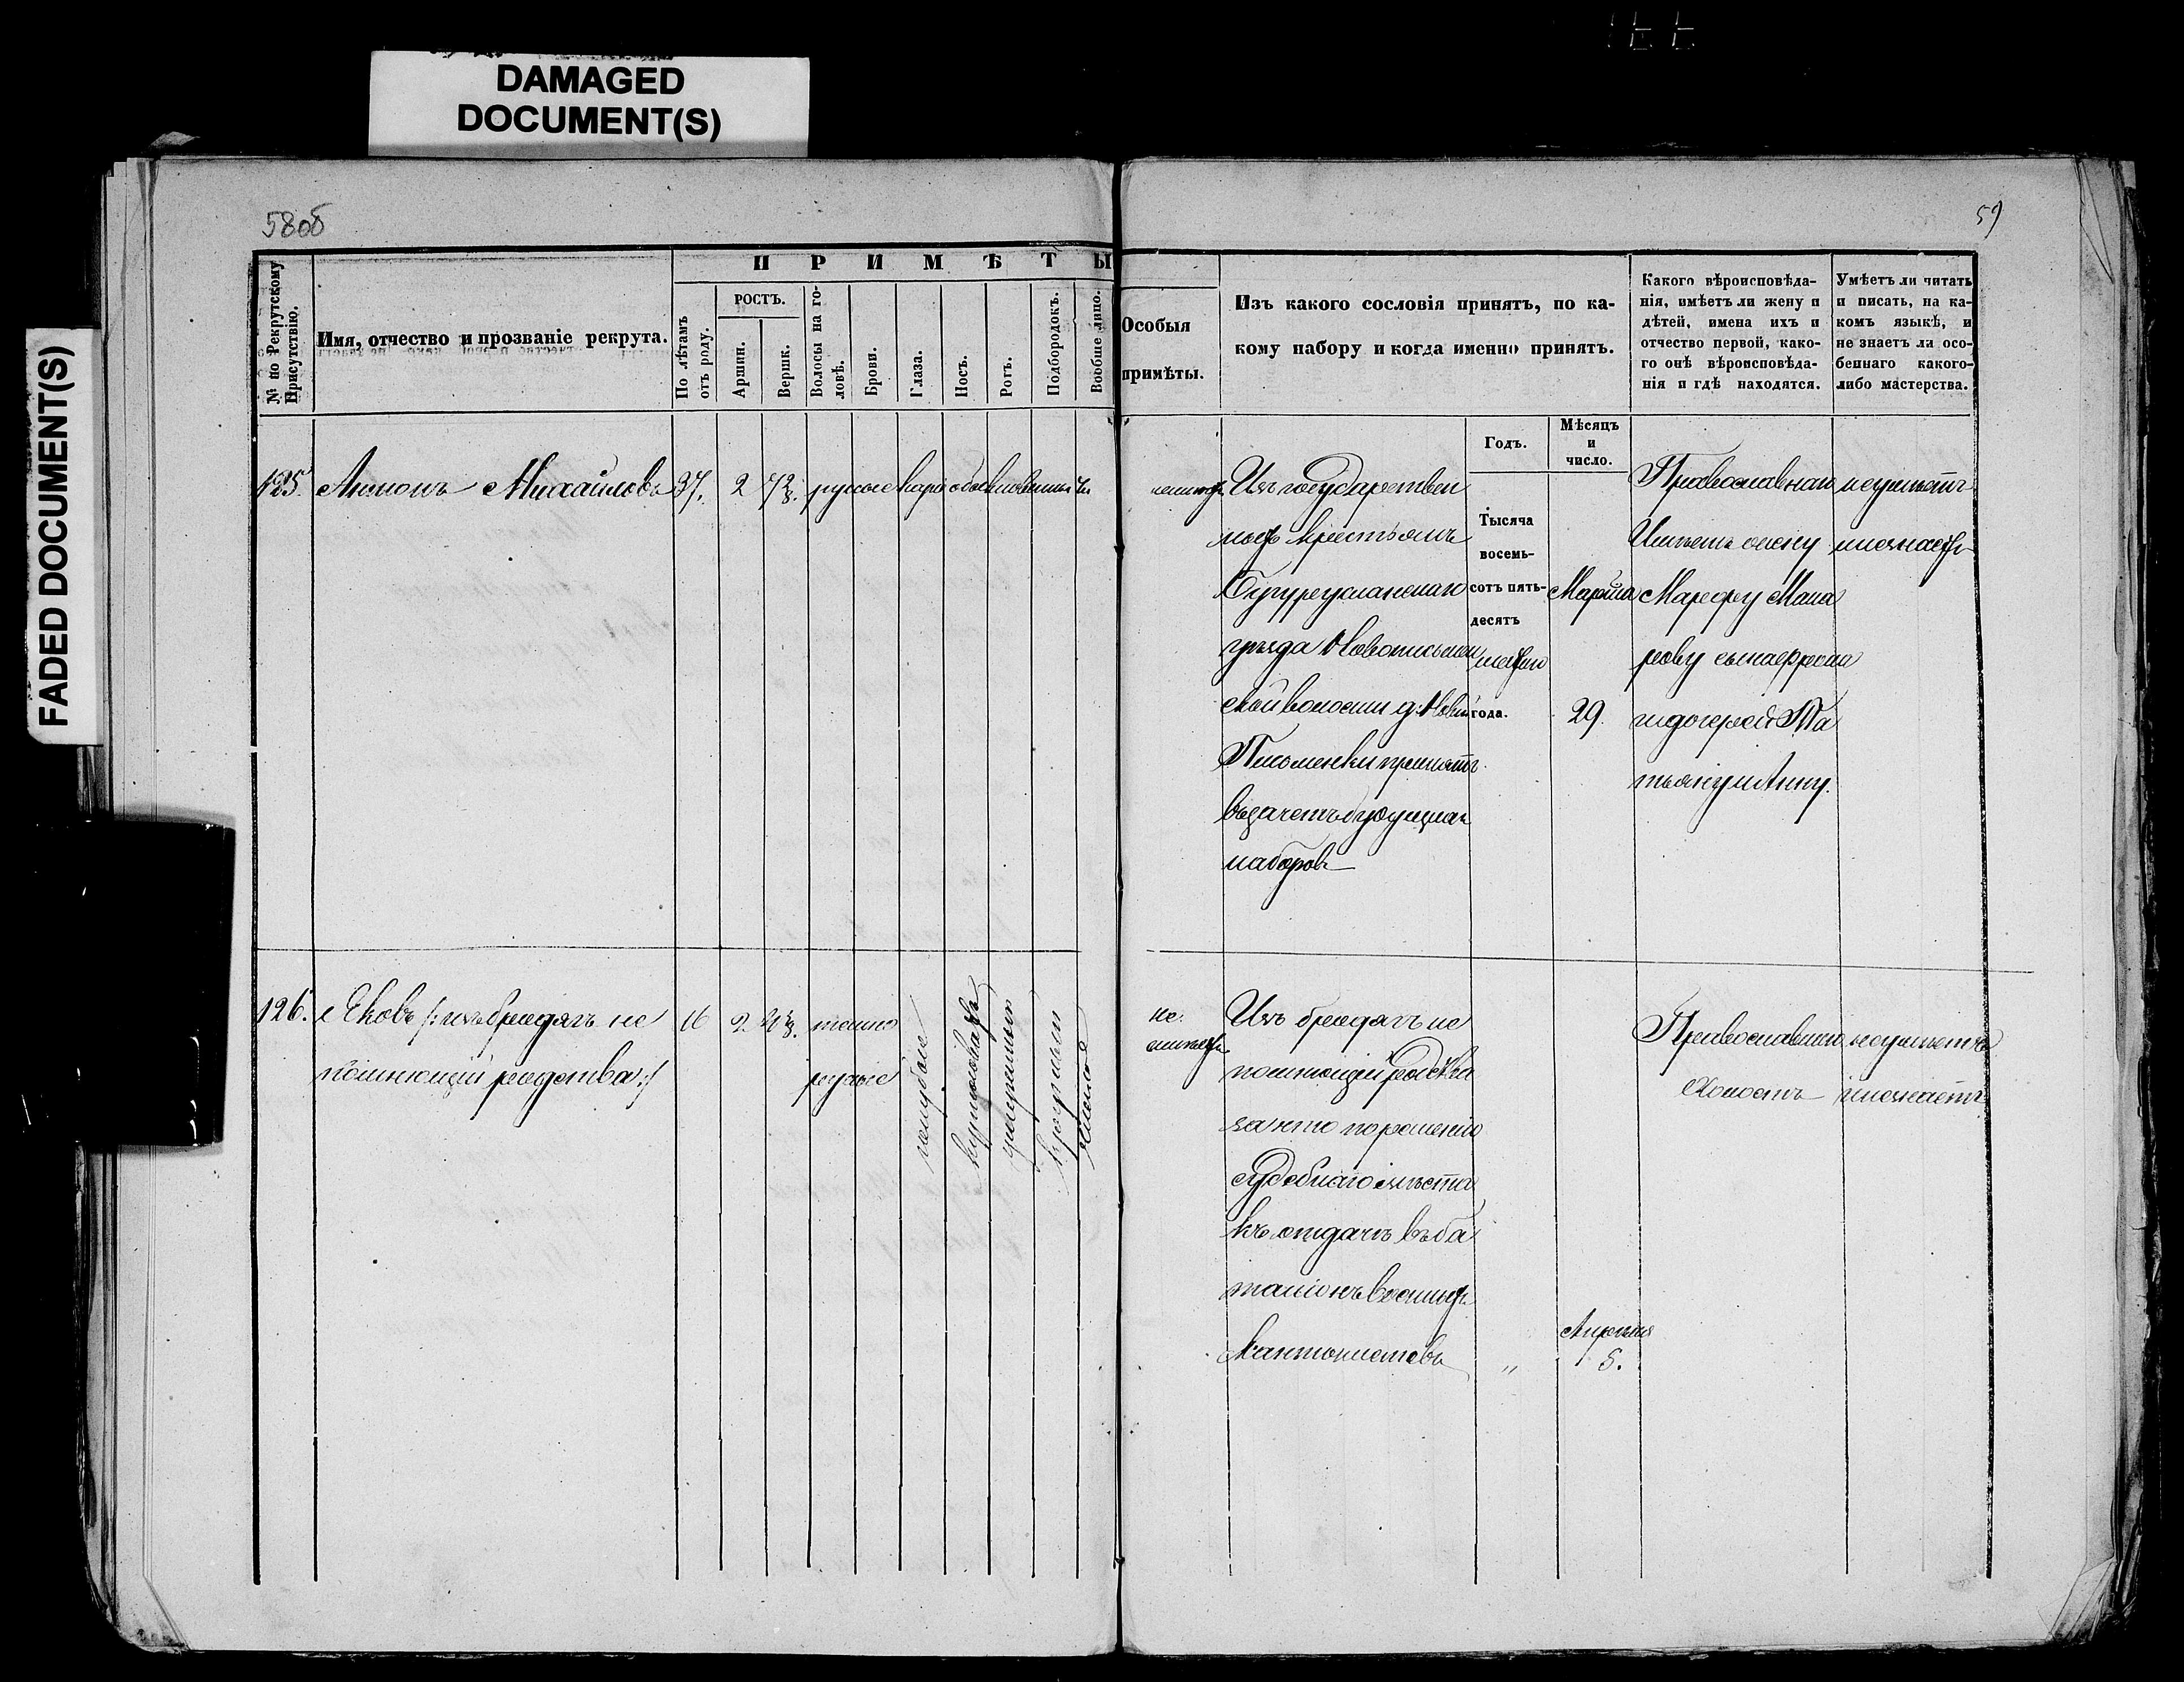 DAMAGED
DOCUMENT(S)
FADED DOCUMENT(S)
58об
59
№ по Рекрутскому Присутствію.
Имя, отчество и прозваніе рекрута.
ПРИМѢТЫ
По лѣтамъ отъ роду.
РОСТЪ.
Аршин.
Вершк.
Волосы на головѣ.
Брови.
Глаза.
Носъ.
Ротъ.
Подбородокъ.
Вообще лицо.
Особыя
примѣты.
Изъ какого сословія принятъ, по ка-
кому набору и когда именно принятъ.
Какого вѣроисповѣда-
нія, имѣетъ ли жену и
дѣтей, имена ихъ и
отчество первой, како-
го онѣ вѣроисповѣда-
нія и гдѣ находятся.
Умѣетъ ли читать
и писать, на ка-
комъ языкѣ, и
не знаетъ ли осо-
беннаго какого-
либо мастерства.
Годъ.
Мѣсяцъ
и
число.
125. Михайловъ 37. 2 русые каріе обыкновенныя
Изъ государствен
ныхъ крестьянъ
Бугурусланскаго
уѣзда Новописьмен
ской волости д. Новой
Письменки принятъ
въ зачетъ будущихъ
наборовъ
Тысяча
восемь-
сотъ пять-
десятъ
года.
Марта
29.
Православнаго
Имѣетъ жену
Марфу Мака
рову сына
и дочерей Та
тьяну и Анну.
неумѣетъ
инезнаетъ
126. Яковъ /:изъ бродягъ не
помнющій родства:/
16 2. темно
русые
голубые
курносовать
умеренный
круглый
чистое
не.
имѣетъ
Изъ бродягъ не
помнющій родства
по решенію
судебнаго мѣста
къ отдачѣ въ ба
таліонъ военныхъ
кантонистовъ
"
Апрѣля
5.
Православнаго
Холостъ
неумѣетъ
инезнаетъ